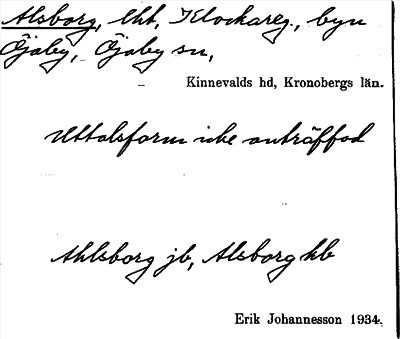 Alsborg, lht, Klockareg., byn
Öjaby, Öjaby sn,
Kinnevalds hd, Kronobergs län.
Uttalsform icke anträffad
Ahlsborg jb, Alsborg kb
Erik Johannesson 1934.